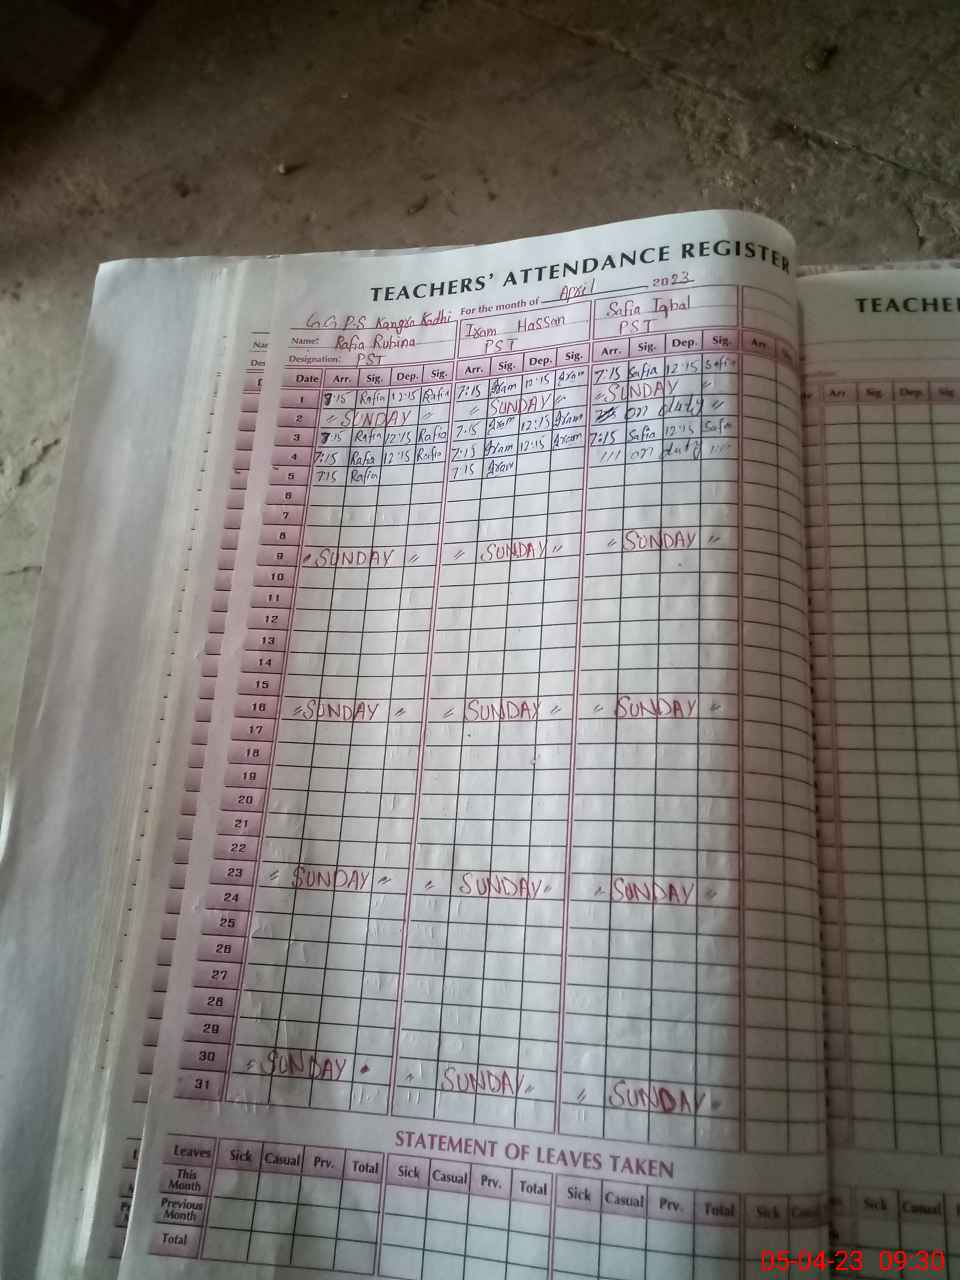 TEACHERS' ATTENDANCE REGISTER
For the month of April 2023
G G P.S Kangra Kadhi
Name: Rafia Rubina Iram Hassan Safia Iqbal
Designation: PST PST PST
Date Arr. Sig. Dep. Sig. Arr. Sig. Dep. Sig. Arr. Sig. Dep. Sig. Arr.
1 7:15 Rafia 12:15 Rafia 7:15 Iram 12:15 Iram 7:15 Safia 12:15 Safia
2 " SUNDAY " " SUNDAY " " SUNDAY "
3 7:15 Rafia 12:15 Rafia 7:15 Iram 12:15 Iram on duty "
4 7:15 Rafia 12:15 Rafia 7:15 Iram 12:15 Iram 7:15 Safia 12:15 Safia
5 7:15 Rafia 7:15 Iram on duty
6
7
8
9 " SUNDAY " " SUNDAY " " SUNDAY "
10
11
12
13
14
15
16 " SUNDAY " " SUNDAY " " SUNDAY "
17
18
19
20
21
22
23 " SUNDAY " " SUNDAY " " SUNDAY "
24
25
26
27
28
29
30 " SUNDAY " " SUNDAY " " SUNDAY "
31
STATEMENT OF LEAVES TAKEN
Leaves Sick Casual Prv. Total Sick Casual Prv. Total Sick Casual Prv. Total Sick
This Month
Previous Month
Total
TEACHE
Arr Sig. Dep. Sig.
Sick Casual
05-04-23 09:30